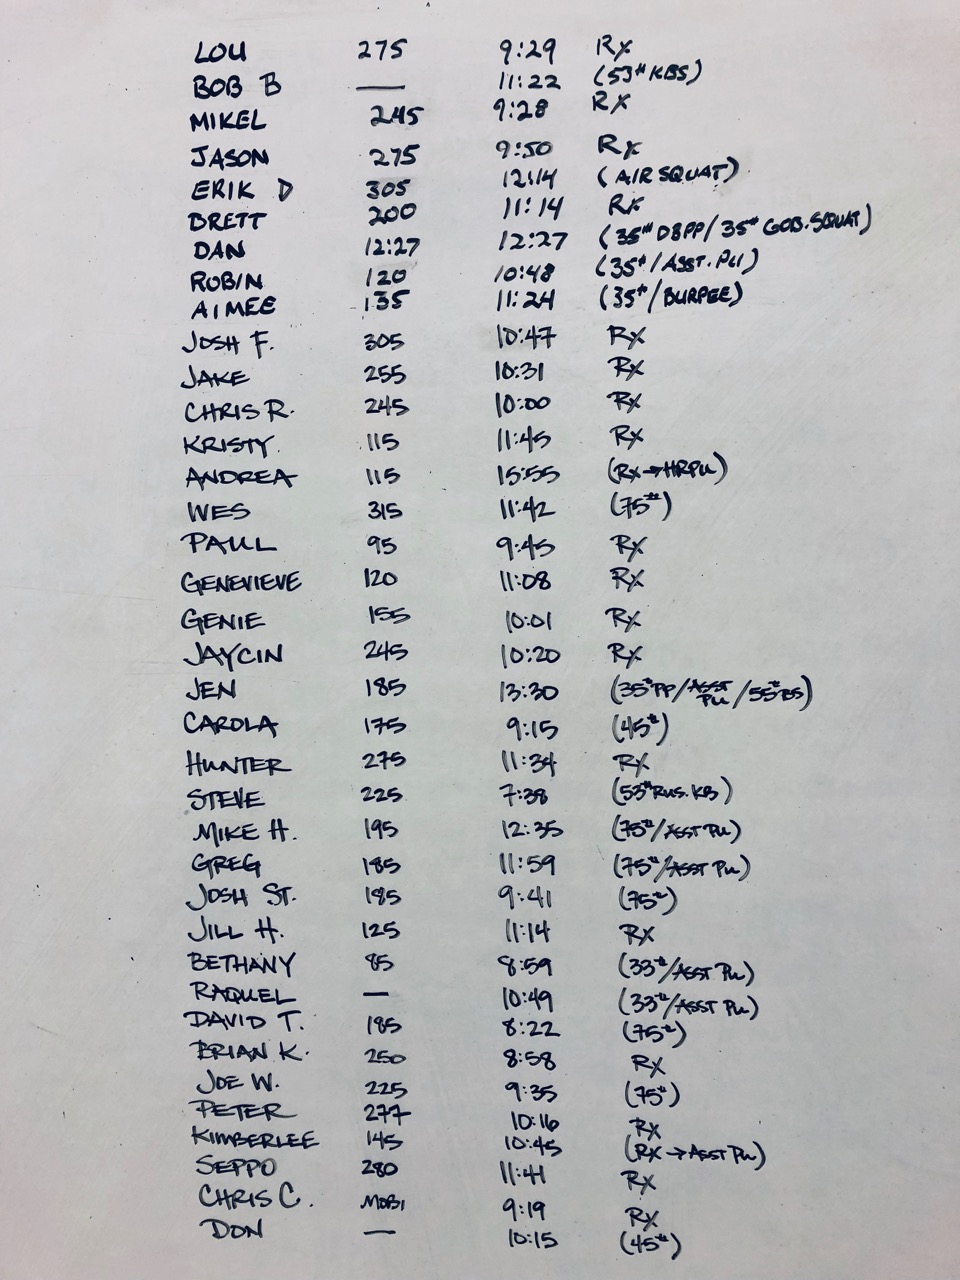 LOU 275 9:29 Rx
BOB B — 11:22 (53# KBS)
MIKEL 245 9:28 Rx
JASON 275 9:50 Rx
ERIK D 305 12:14 (AIR SQUAT)
BRETT 200 11:14 Rx
DAN 12:27 12:27 (35# DBPP/35# GOB.SQUAT)
ROBIN 120 10:48 (35#/ASST. PU)
AIMEE 135 11:24 (35#/BURPEE)
JOSH F. 305 10:47 Rx
JAKE 255 10:31 Rx
CHRIS R. 245 10:00 Rx
KRISTY 115 11:45 Rx
ANDREA 115 15:55 (Rx→HRPU)
WES 315 11:42 (75#)
PAUL 95 9:45 Rx
GENEVIEVE 120 11:08 Rx
GENIE 155 10:01 Rx
JAYCIN 245 10:20 Rx
JEN 185 13:30 (35#PP/ASST PU/55#BS)
CAROLA 175 9:15 (45#)
HUNTER 275 11:34 Rx
STEVE 225 7:38 (53# RUS. KB)
MIKE H. 195 12:35 (75#/ASST PU)
GREG 185 11:59 (75#/ASST PU)
JOSH ST. 185 9:41 (75#)
JILL H. 125 11:14 Rx
BETHANY 85 8:59 (33#/ASST PU)
RAQUEL — 10:49 (33#/ASST PU)
DAVID T. 185 8:22 (75#)
BRIAN K. 250 8:58 Rx
JOE W. 225 9:35 (75#)
PETER 277 10:16 Rx
KIMBERLEE 145 10:45 (RX→ASST PU)
SEPPO 280 11:41 Rx
CHRIS C. MOBI 9:19 Rx
DON — 10:15 (45#)